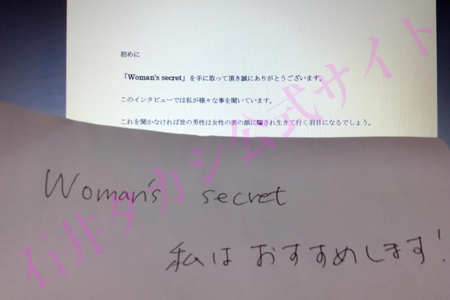 初めに
「Woman's secret」を手に取って頂き誠にありがとうございます。
このインタビューでは私が様々な事を聞いています。
これを聞かなければ世の男性は女性の裏の顔に騙され生きて行く羽目になるでしょう。
Woman's secret
私はおすすめします!
石井タカシ公式サイト